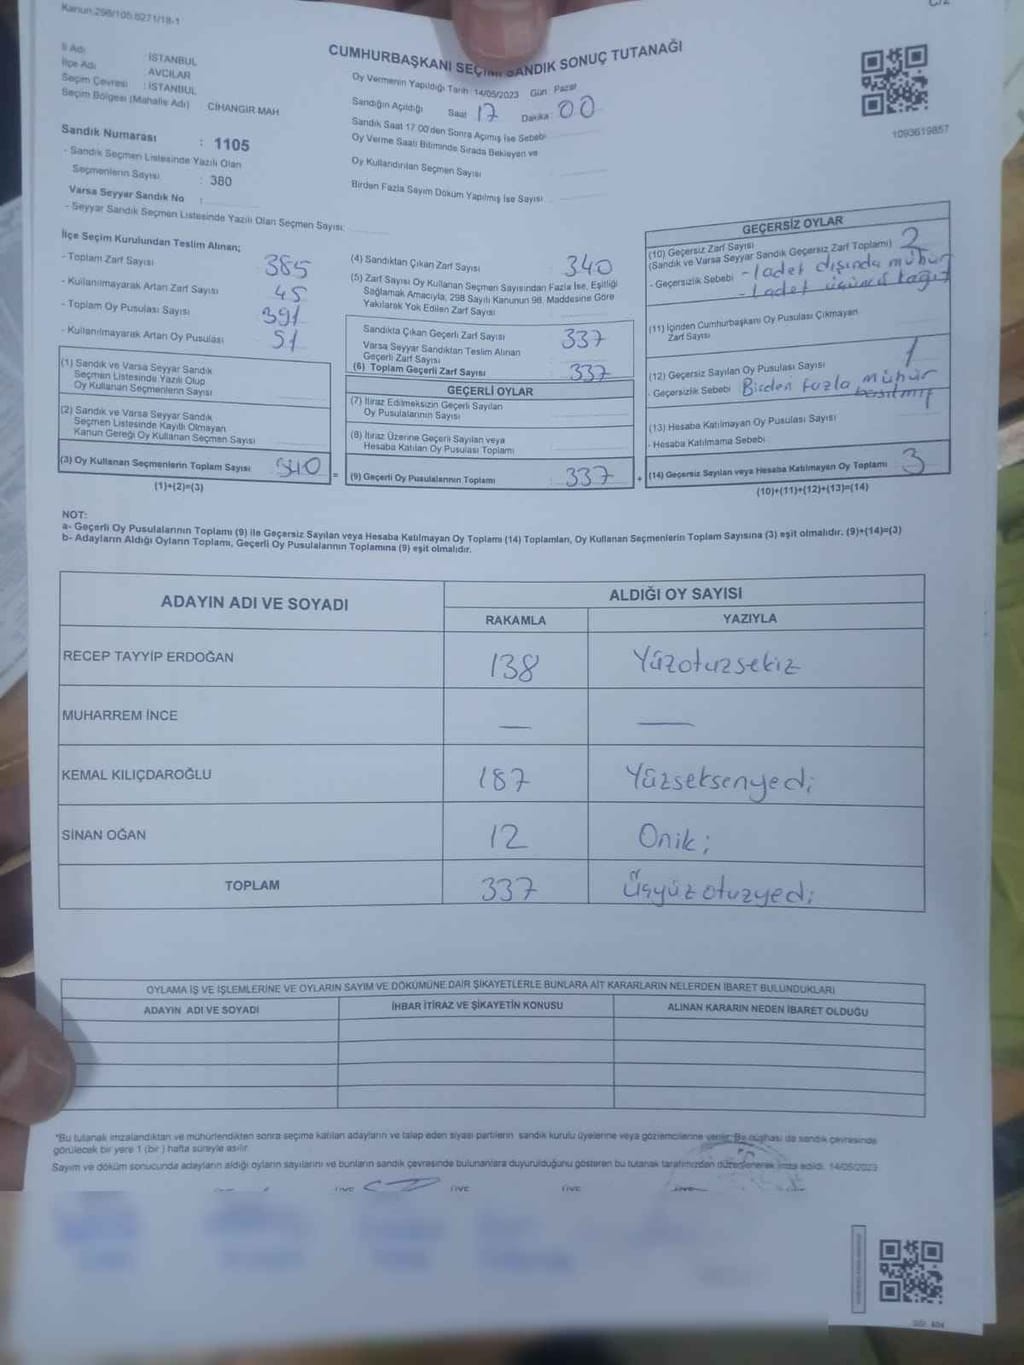 Kanun:298/105.6271/18-1
CUMHURBAŞKANI SANDIK SONUÇ TUTANAĞI
İl Adı : İSTANBUL
İlçe Adı : AVCILAR
Seçim Çevresi : İSTANBUL
Seçim Bölgesi (Mahalle Adı) CİHANGİR MAH
Sandık Numarası : 1105
- Sandık Seçmen Listesinde Yazılı Olan
Seçmenlerin Sayısı : 380
Varsa Seyyar Sandık No :
- Seyyar Sandık Seçmen Listesinde Yazılı Olan Seçmen Sayısı:
Oy Vermenin Yapıldığı Tarih: 14/05/2023 Gün: Pazar
Sandığın Açıldığı Saat 17 Dakika: 00
Sandık Saat 17:00'den Sonra Açımış İse Sebebi
Oy Verme Saati Bitiminde Sırada Bekleyen ve
Oy Kullandırılan Seçmen Sayısı
Birden Fazla Sayım Döküm Yapılmış İse Sayısı
1093619857
İlçe Seçim Kurulundan Teslim Alınan;
- Toplam Zarf Sayısı 385
- Kullanılmayarak Artan Zarf Sayısı 45
- Toplam Oy Pusulası Sayısı 391
- Kullanılmayarak Artan Oy Pusulası 51
(1) Sandık ve Varsa Seyyar Sandık
Seçmen Listesinde Yazılı Olup
Oy Kullanan Seçmenlerin Sayısı
(2) Sandık ve Varsa Seyyar Sandık
Seçmen Listesinde Kayıtlı Olmayan
Kanun Gereği Oy Kullanan Seçmen Sayısı
(3) Oy Kullanan Seçmenlerin Toplam Sayısı 340 =
(1)+(2)=(3)
(4) Sandıktan Çıkan Zarf Sayısı : 340
(5) Zarf Sayısı Oy Kullanan Seçmen Sayısından Fazla İse, Eşitliği
Sağlamak Amacıyla, 298 Sayılı Kanunun 98. Maddesine Göre
Yakılarak Yok Edilen Zarf Sayısı
Sandıkta Çıkan Geçerli Zarf Sayısı 337
Varsa Seyyar Sandıktan Teslim Alınan
Geçerli Zarf Sayısı
(6) Toplam Geçerli Zarf Sayısı : 337
GEÇERLİ OYLAR
(7) İtiraz Edilmeksizin Geçerli Sayılan
Oy Pusulalarının Sayısı
(8) İtiraz Üzerine Geçerli Sayılan veya
Hesaba Katılan Oy Pusulası Toplamı
(9) Geçerli Oy Pusulalarının Toplamı : 337 +
GEÇERSİZ OYLAR
(10) Geçersiz Zarf Sayısı
(Sandık ve Varsa Seyyar Sandık Geçersiz Zarf Toplamı) 2
- Geçersizlik Sebebi - 1 adet dışında mühür
- 1 adet üçüncü kağıt
(11) İçinden Cumhurbaşkanı Oy Pusulası Çıkmayan
Zarf Sayısı
(12) Geçersiz Sayılan Oy Pusulası Sayısı 1
- Geçersizlik Sebebi Birden fazla mühür
basılmış
(13) Hesaba Katılmayan Oy Pusulası Sayısı
- Hesaba Katılmama Sebebi
(14) Geçersiz Sayılan veya Hesaba Katılmayan Oy Toplamı 3
(10)+(11)+(12)+(13)=(14)
NOT:
a- Geçerli Oy Pusulalarının Toplamı (9) ile Geçersiz Sayılan veya Hesaba Katılmayan Oy Toplamı (14) Toplamları, Oy Kullanan Seçmenlerin Toplam Sayısına (3) eşit olmalıdır. (9)+(14)=(3)
b- Adayların Aldığı Oyların Toplamı, Geçerli Oy Pusulalarının Toplamına (9) eşit olmalıdır.
ADAYIN ADI VE SOYADI ALDIĞI OY SAYISI
RAKAMLA YAZIYLA
RECEP TAYYİP ERDOĞAN 138 Yüzotuzsekiz
MUHARREM İNCE — —
KEMAL KILIÇDAROĞLU 187 Yüzseksenyedi
SİNAN OĞAN 12 Oniki
TOPLAM 337 Üçyüzotuzyedi
OYLAMA İŞ VE İŞLEMLERİNE VE OYLARIN SAYIM VE DÖKÜMÜNE DAİR ŞİKAYETLERLE BUNLARA AİT KARARLARIN NELERDEN İBARET BULUNDUKLARI
ADAYIN ADI VE SOYADI İHBAR İTİRAZ VE ŞİKAYETİN KONUSU ALINAN KARARIN NEDEN İBARET OLDUĞU
*Bu tutanak imzalandıktan ve mühürlendikten sonra seçime katılan adayların ve talep eden siyasi partilerin sandık kurulu üyelerine veya gözlemcilerine verilir. Bir nüshası da sandık çevresinde
görülecek bir yere 1 (bir) hafta süreyle asılır.
Sayım ve döküm sonucunda adayların aldığı oyların sayılarını ve bunların sandık çevresinde bulunanlara duyurulduğunu gösteren bu tutanak tarafımızdan düzenlenerek imza edildi. 14/05/2023